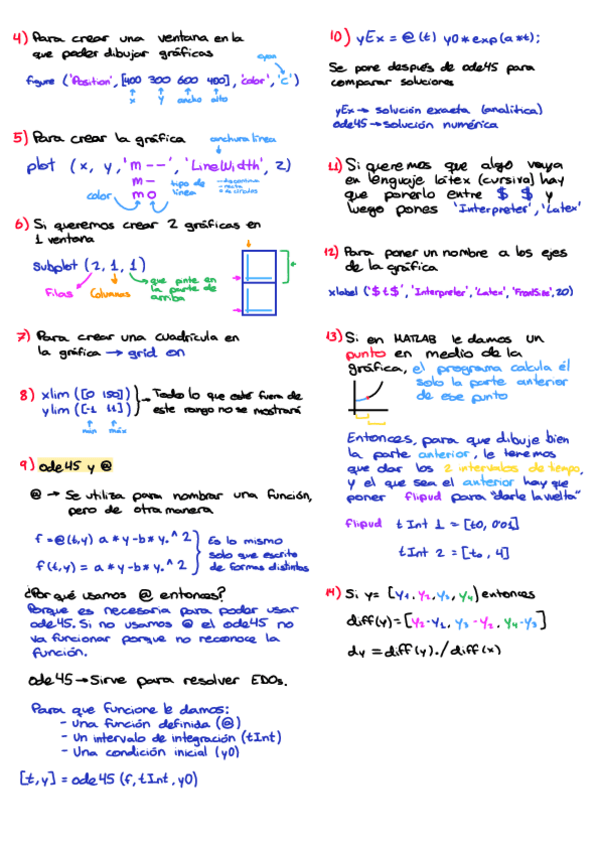 4) Para crear una ventana en la
que poder dibujar gráficas
cyan
figure ('Position', [400 300 600 400], 'color', 'c')
x y ancho alto
5) Para crear la gráfica
anchura línea
plot (x, y, 'm--', 'LineWidth', 2)
m-
mo
color
tipo de línea
6) Si queremos crear 2 gráficas en
1 ventana
subplot (2, 1, 1)
Filas
Columnas
que pinte en
la parte de
arriba
7) Para crear una cuadrícula en
la gráfica → grid on
8) xlim ([0 150])
ylim ([-1 11])
Todo lo que esté fuera de
este rango no se mostrará
min máx
9) ode45 y @
@ → Se utiliza para nombrar una función,
pero de otra manera
f = @(t,y) a*y-b*y.^2
f(t,y) = a*y-b*y.^2
Es lo mismo
solo que escrito
de formas distintas
¿Por qué usamos @ entonces?
Porque es necesaria para poder usar
ode45. Si no usamos @ el ode45 no
va funcionar porque no reconoce la
función.
ode45 → Sirve para resolver EDOs.
Para que funcione le damos:
- Una función definida (@)
- Un intervalo de integración (tInt)
- Una condición inicial (y0)
[t,y] = ode45 (f, tInt, y0)
10) yEx = @(t) y0*exp(a*t);
Se pone después de ode45 para
comparar soluciones
yEx → solución exacta (analítica)
ode45 → solución numérica
11) Si queremos que algo vaya
en lenguaje látex (cursiva) hay
que ponerlo entre $ $ y
luego pones 'Interpreter', 'Latex'
12) Para poner un nombre a los ejes
de la gráfica
xlabel ('$t$', 'Interpreter', 'Latex', 'FontSize', 20)
13) Si en MATLAB le damos un
punto en medio de la
gráfica, el programa calcula él
solo la parte anterior
de ese punto
Entonces, para que dibuje bien
la parte anterior, le tenemos
que dar los 2 intervalos de tiempo,
y el que sea el anterior hay que
poner flipud para "darle la vuelta"
flipud t Int 1 = [t0, 0'01]
t Int 2 = [t0, 4]
14) Si y = [y1, y2, y3, y4] entonces
diff(y) = [y2-y1, y3-y2, y4-y3]
dy = diff(y)./diff(x)